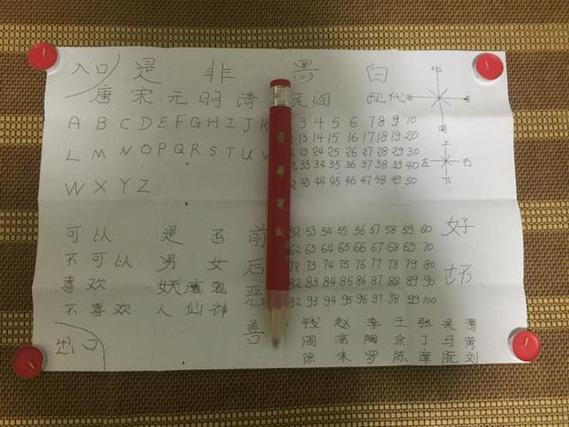 入口 是 非 黑 白
唐 宋 元 明 清 民间 现代
北
南
A B C D E F G H I J K 3 4 5 6 7 8 9 10
L M N O P Q R S T U V 12 13 14 15 16 17 18 19 20
上
左 右
下
22 23 24 25 26 27 28 29 30
32 33 34 35 36 37 38 39 40
W X Y Z 42 43 44 45 46 47 48 49 50
可以 是 否 前 52 53 54 55 56 57 58 59 60 好
不可以 男 女 后 62 63 64 65 66 67 68 69 70
72 73 74 75 76 77 78 79 80 坏
喜欢 妖 魔 鬼 恶 82 83 84 85 86 87 88 89 90
不喜欢 人 仙 神 92 93 94 95 96 97 98 99 100
出口 善 钱 赵 李 王 张 吴
周 高 陶 余 丁 马 黄
徐 朱 罗 陈 章 阮 刘